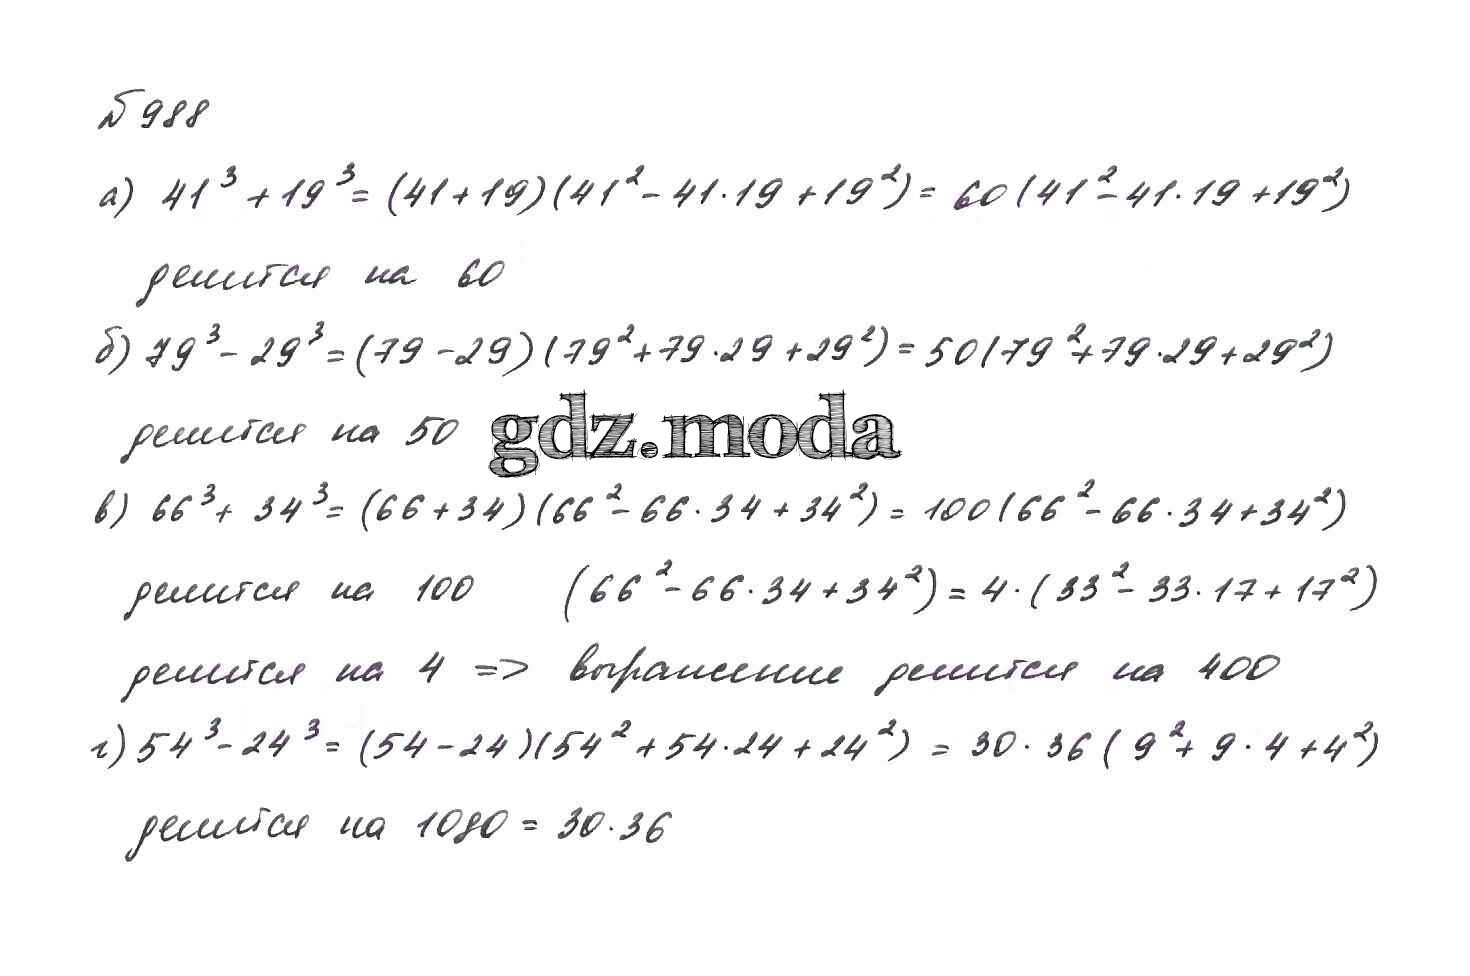 № 988
а) 41³ + 19³ = (41 + 19)(41² - 41·19 + 19²) = 60(41² - 41·19 + 19²)
делится на 60
б) 79³ - 29³ = (79 - 29)(79² + 79·29 + 29²) = 50(79² + 79·29 + 29²)
делится на 50
gdz.moda
в) 66³ + 34³ = (66 + 34)(66² - 66·34 + 34²) = 100(66² - 66·34 + 34²)
делится на 100 (66² - 66·34 + 34²) = 4·(33² - 33·17 + 17²)
делится на 4 => выражение делится на 400
г) 54³ - 24³ = (54 - 24)(54² + 54·24 + 24²) = 30·36(9² + 9·4 + 4²)
делится на 1080 = 30·36